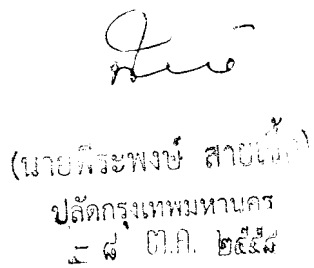 (นายพีระพงษ์ สายเชื้อ)
ปลัดกรุงเทพมหานคร
- ๘ ต.ค. ๒๕๕๘